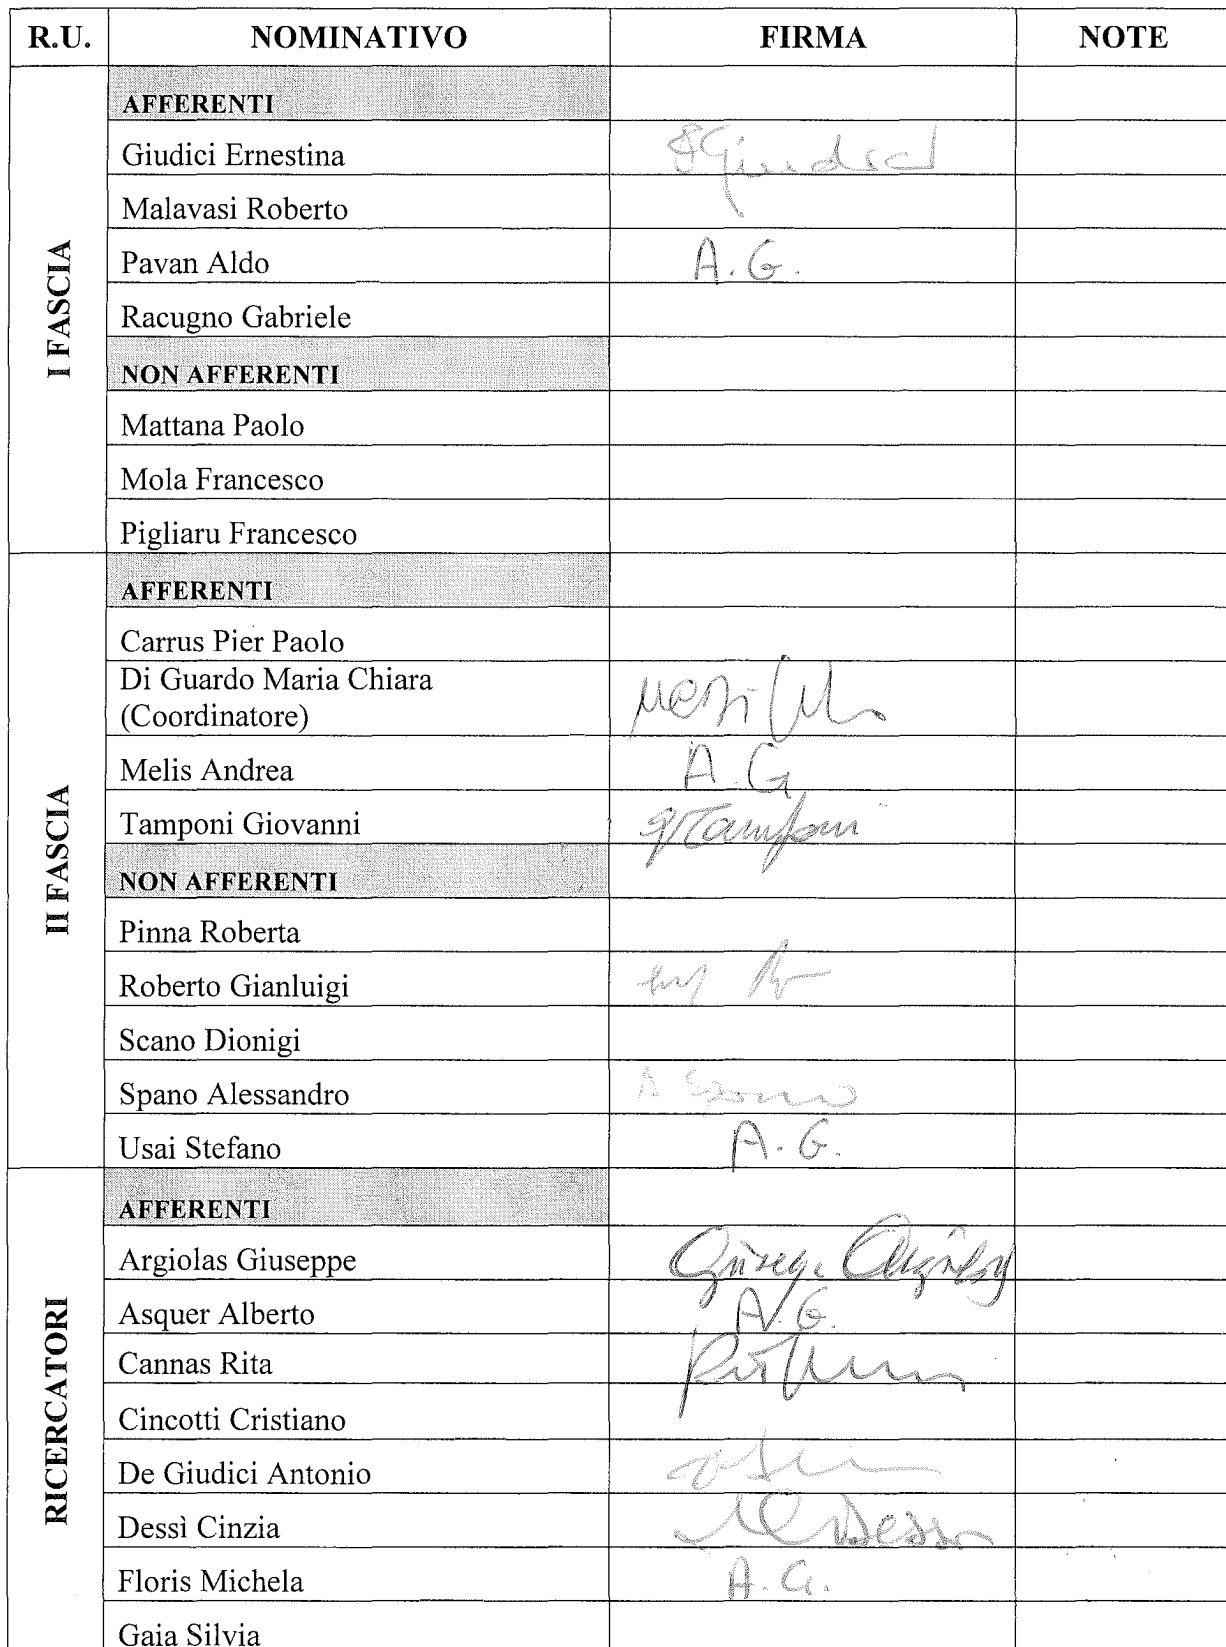 R.U. NOMINATIVO FIRMA NOTE
I FASCIA
AFFERENTI
Giudici Ernestina EGiudici
Malavasi Roberto
Pavan Aldo A.G.
Racugno Gabriele
NON AFFERENTI
Mattana Paolo
Mola Francesco
Pigliaru Francesco
II FASCIA
AFFERENTI
Carrus Pier Paolo
Di Guardo Maria Chiara
(Coordinatore)
Melis Andrea A.G
Tamponi Giovanni GTamponi
NON AFFERENTI
Pinna Roberta
Roberto Gianluigi
Scano Dionigi
Spano Alessandro A Spano
Usai Stefano A.G.
RICERCATORI
AFFERENTI
Argiolas Giuseppe Giuseppe Argiolas
Asquer Alberto A.G.
Cannas Rita
Cincotti Cristiano
De Giudici Antonio
Dessì Cinzia Dessì
Floris Michela A.G.
Gaia Silvia